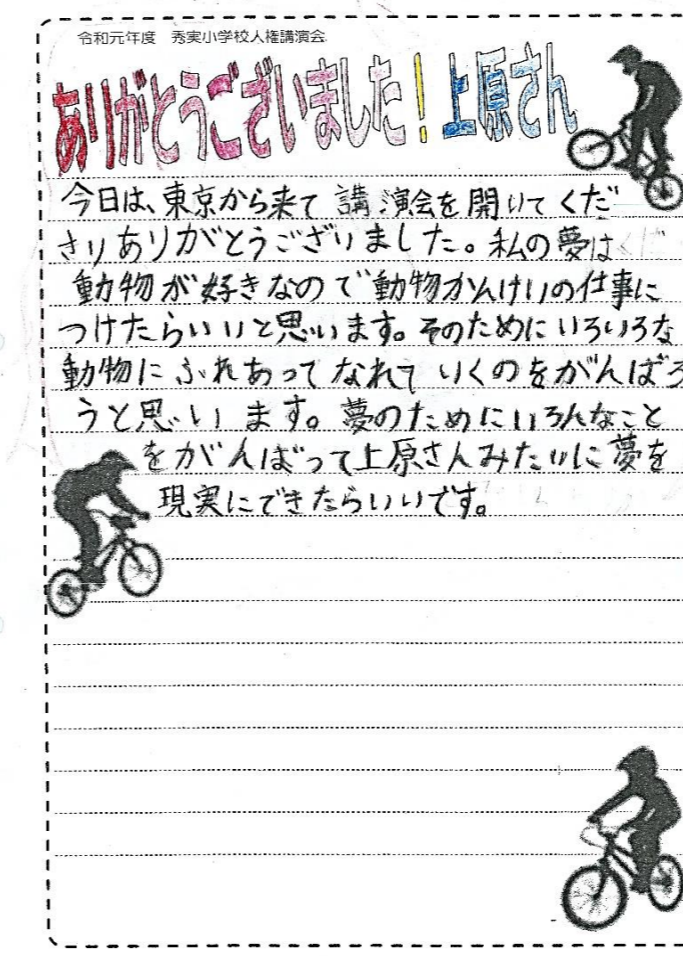 令和元年度 秀実小学校人権講演会
ありがとうございました！上原さん
今日は、東京から来て講演会を開いてくだ
さりありがとうございました。私の夢は
動物が好きなので動物かんけいの仕事に
つけたらいいと思います。そのためにいろいろな
動物にふれあってなれていくのをがんばろ
うと思います。夢のためにいろんなこと
をがんばって上原さんみたいに夢を
現実にできたらいいです。